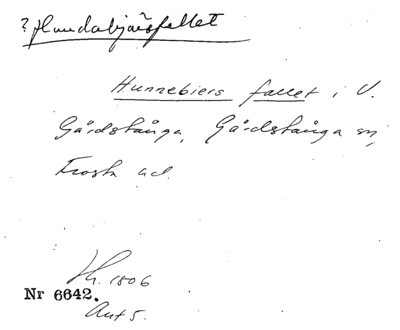 ? Hundabjärsfallet
Hunnebiers fallet i V.
Gårdstånga, Gårdstånga sn,
Frosta hd.
Lh. 1806
Nr 6642.
Akt 5.